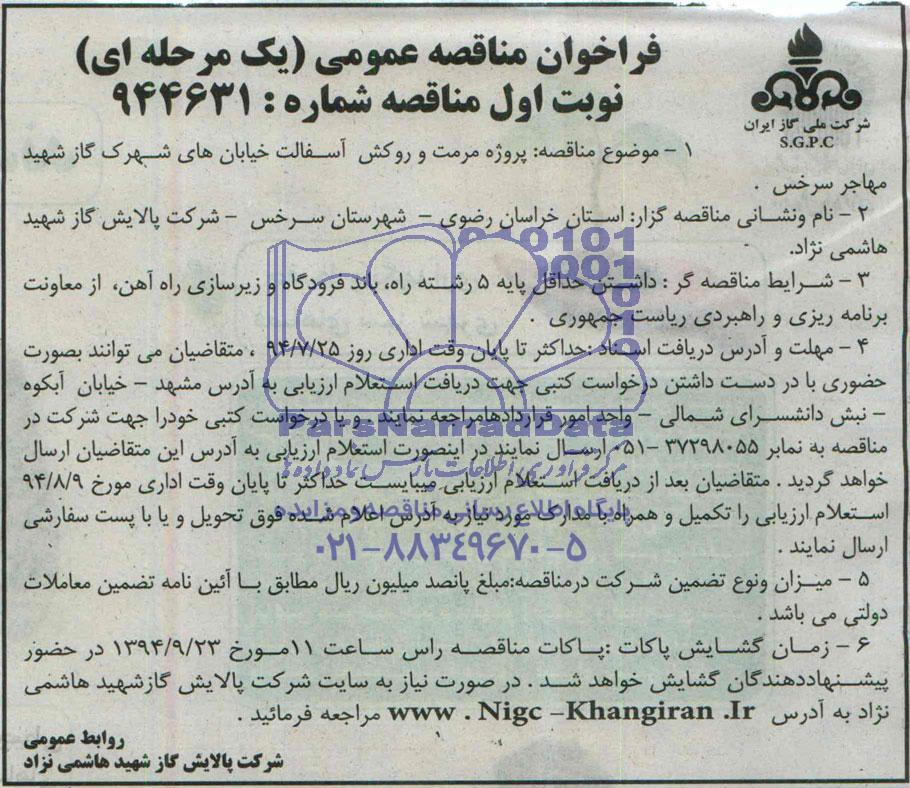 فراخوان مناقصه عمومی (یک مرحله ای)
نوبت اول مناقصه شماره : ۹۴۴۶۳۱
شرکت ملی گاز ایران
S.G.P.C
۱ - موضوع مناقصه: پروژه مرمت و روکش آسفالت خیابان های شهرک گاز شهید
مهاجر سرخس .
۲ - نام ونشانی مناقصه گزار: استان خراسان رضوی - شهرستان سرخس - شرکت پالایش گاز شهید
هاشمی نژاد.
۳ - شرایط مناقصه گر : داشتن حداقل پایه ۵ رشته راه، باند فرودگاه و زیرسازی راه آهن، از معاونت
برنامه ریزی و راهبردی ریاست جمهوری .
۴ - مهلت و آدرس دریافت اسناد :حداکثر تا پایان وقت اداری روز ۹۴/۷/۲۵ ، متقاضیان می توانند بصورت
حضوری با در دست داشتن درخواست کتبی جهت دریافت استعلام ارزیابی به آدرس مشهد - خیابان آبکوه
- نبش دانشسرای شمالی - واحد امور قراردادهامراجعه نمایند و یا درخواست کتبی خودرا جهت شرکت در
مناقصه به نمابر ۳۷۲۹۸۰۵۵ -۰۵۱ ارسال نمایند در اینصورت استعلام ارزیابی به آدرس این متقاضیان ارسال
خواهد گردید . متقاضیان بعد از دریافت استعلام ارزیابی میبایست حداکثر تا پایان وقت اداری مورخ ۹۴/۸/۹
استعلام ارزیابی را تکمیل و همراه با مدارک مورد نیاز به آدرس اعلام شده فوق تحویل و یا با پست سفارشی
ارسال نمایند .
۵ - میزان ونوع تضمین شرکت درمناقصه:مبلغ پانصد میلیون ریال مطابق با آئین نامه تضمین معاملات
دولتی می باشد .
۶ - زمان گشایش پاکات :پاکات مناقصه راس ساعت ۱۱مورخ ۱۳۹۴/۹/۲۳ در حضور
پیشنهاددهندگان گشایش خواهد شد . در صورت نیاز به سایت شرکت پالایش گازشهید هاشمی
نژاد به آدرس www . Nigc -Khangiran .Ir مراجعه فرمائید .
روابط عمومی
شرکت پالایش گاز شهید هاشمی نژاد
ParsNamadData
مرکز فرآوری اطلاعات پارس نماد داده ها
پایگاه اطلاع رسانی مناقصه و مزایده
۰۲۱-۸۸۳۴۹۶۷۰-۵